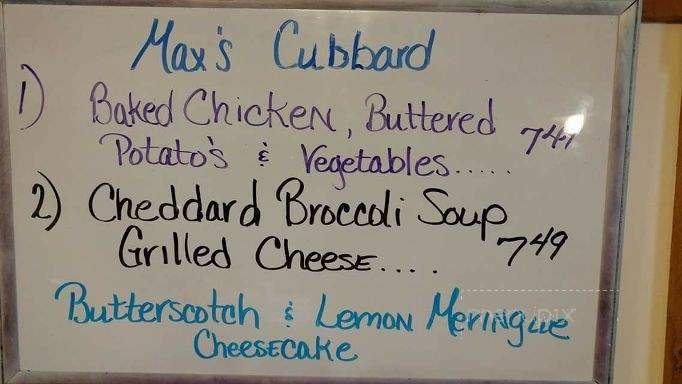 Max's Cubbard
1) Baked Chicken, Buttered
Potato's & Vegetables.....
2) Cheddard Broccoli Soup
Grilled Cheese.... 7 49
Butterscotch & Lemon Meringue
Cheesecake